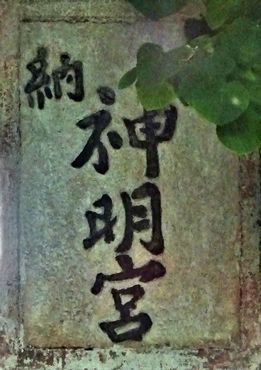 納
神明宮